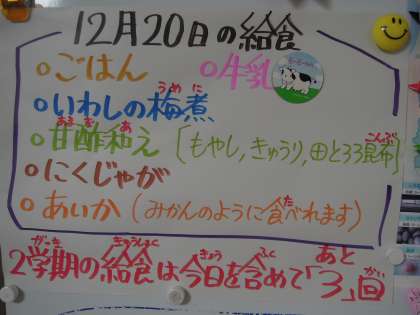 12月20日の給食
○ごはん ○牛乳
○いわしの梅煮
○甘酢和え [もやし,きゅうり,田とろろ昆布]
○にくじゃが
○あいか (みかんのように食べれます)
2学期の給食は今日を含めて「あと3」回